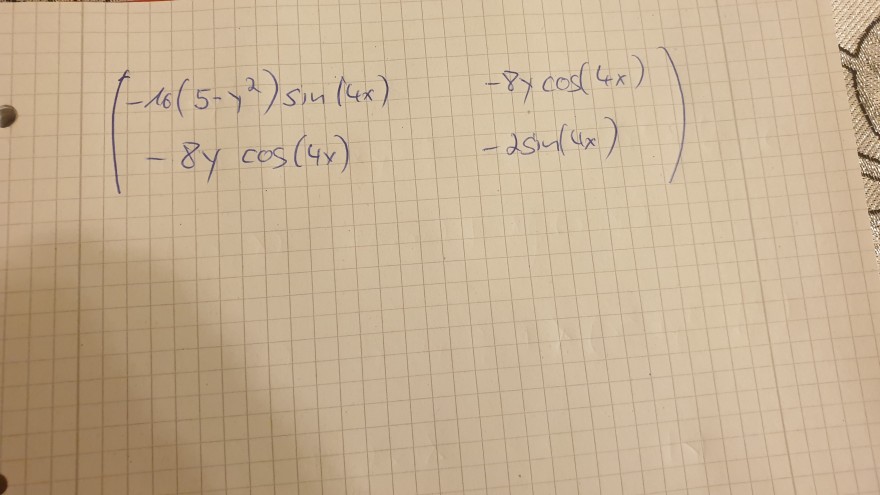 -16(5-y²)sin(4x) -8y cos(4x)
-8y cos(4x) -2sin(4x)